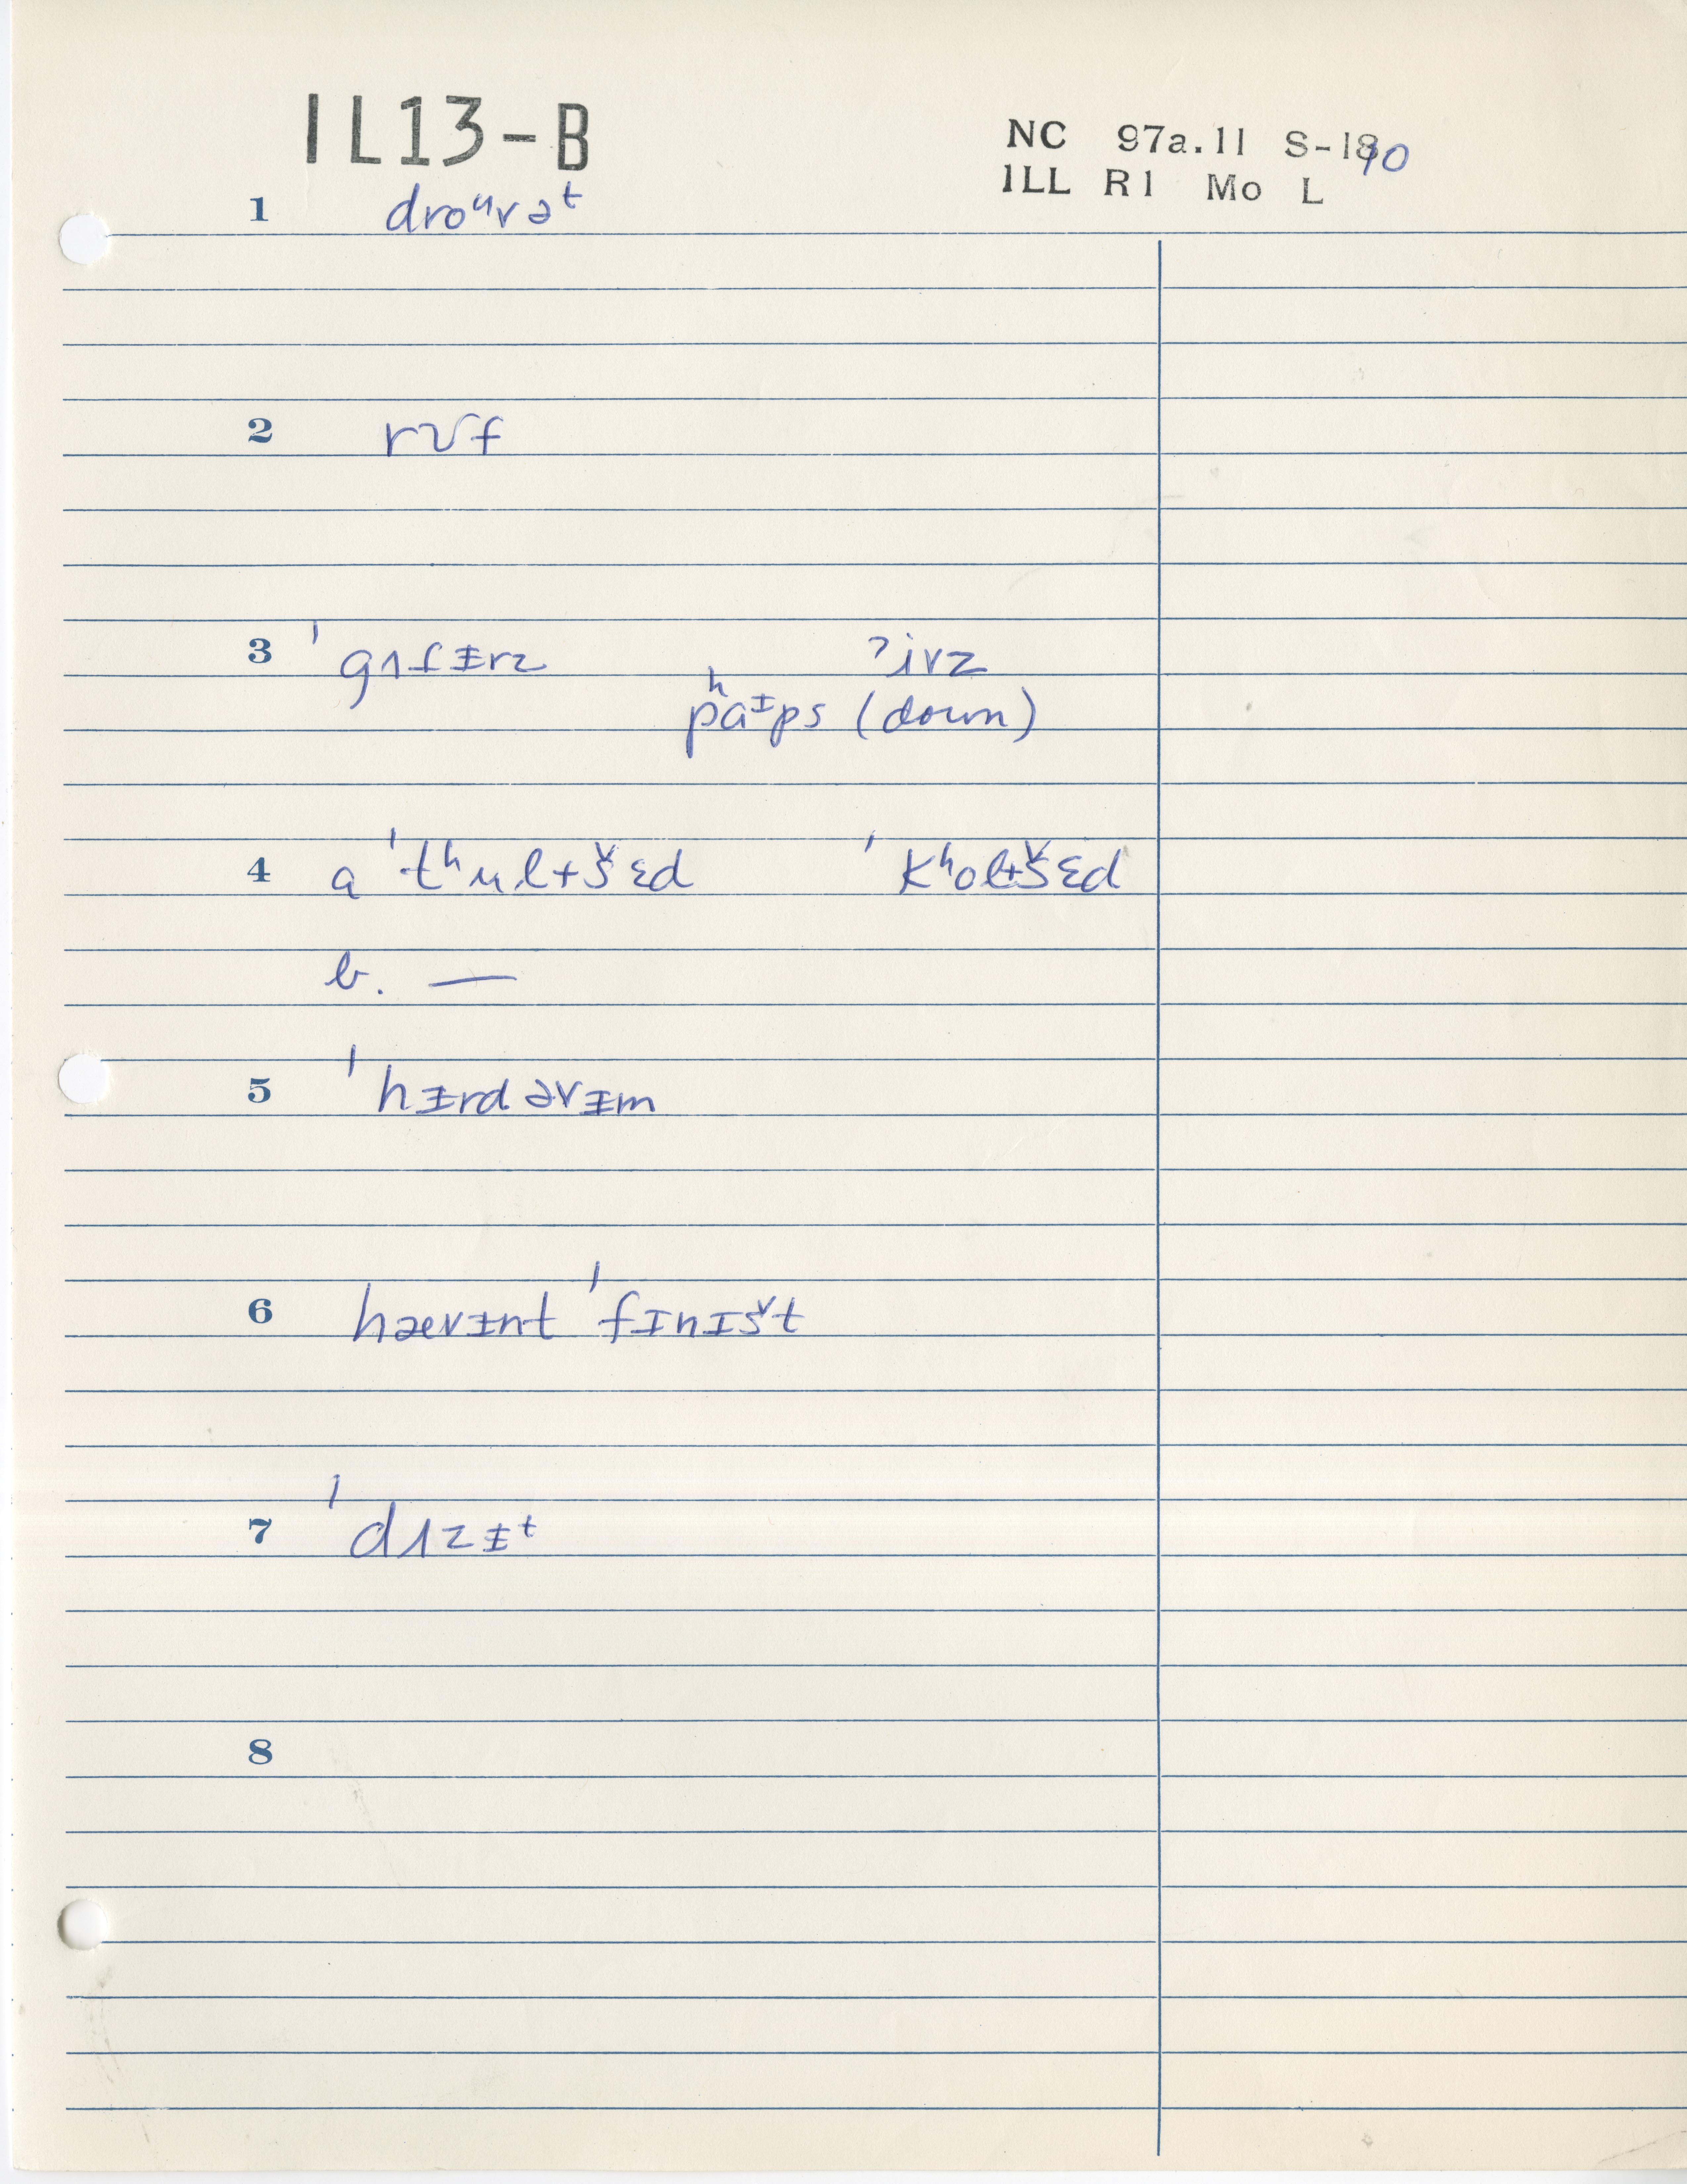 IL13-B
NC 97a.11 S-190
ILL R1 Mo L
1 droᵘvəᵗ
2 rʊf
3 ˈgʌfɨrz ˀivz
pʰaᶦps (down)
4 a ˈtʰultšɛd ˈkʰoltšɛd
b. —
5 ˈhɨrdəvɨm
6 hævɨnt ˈfɪnɪšt
7 ˈdʌzɨᵗ
8